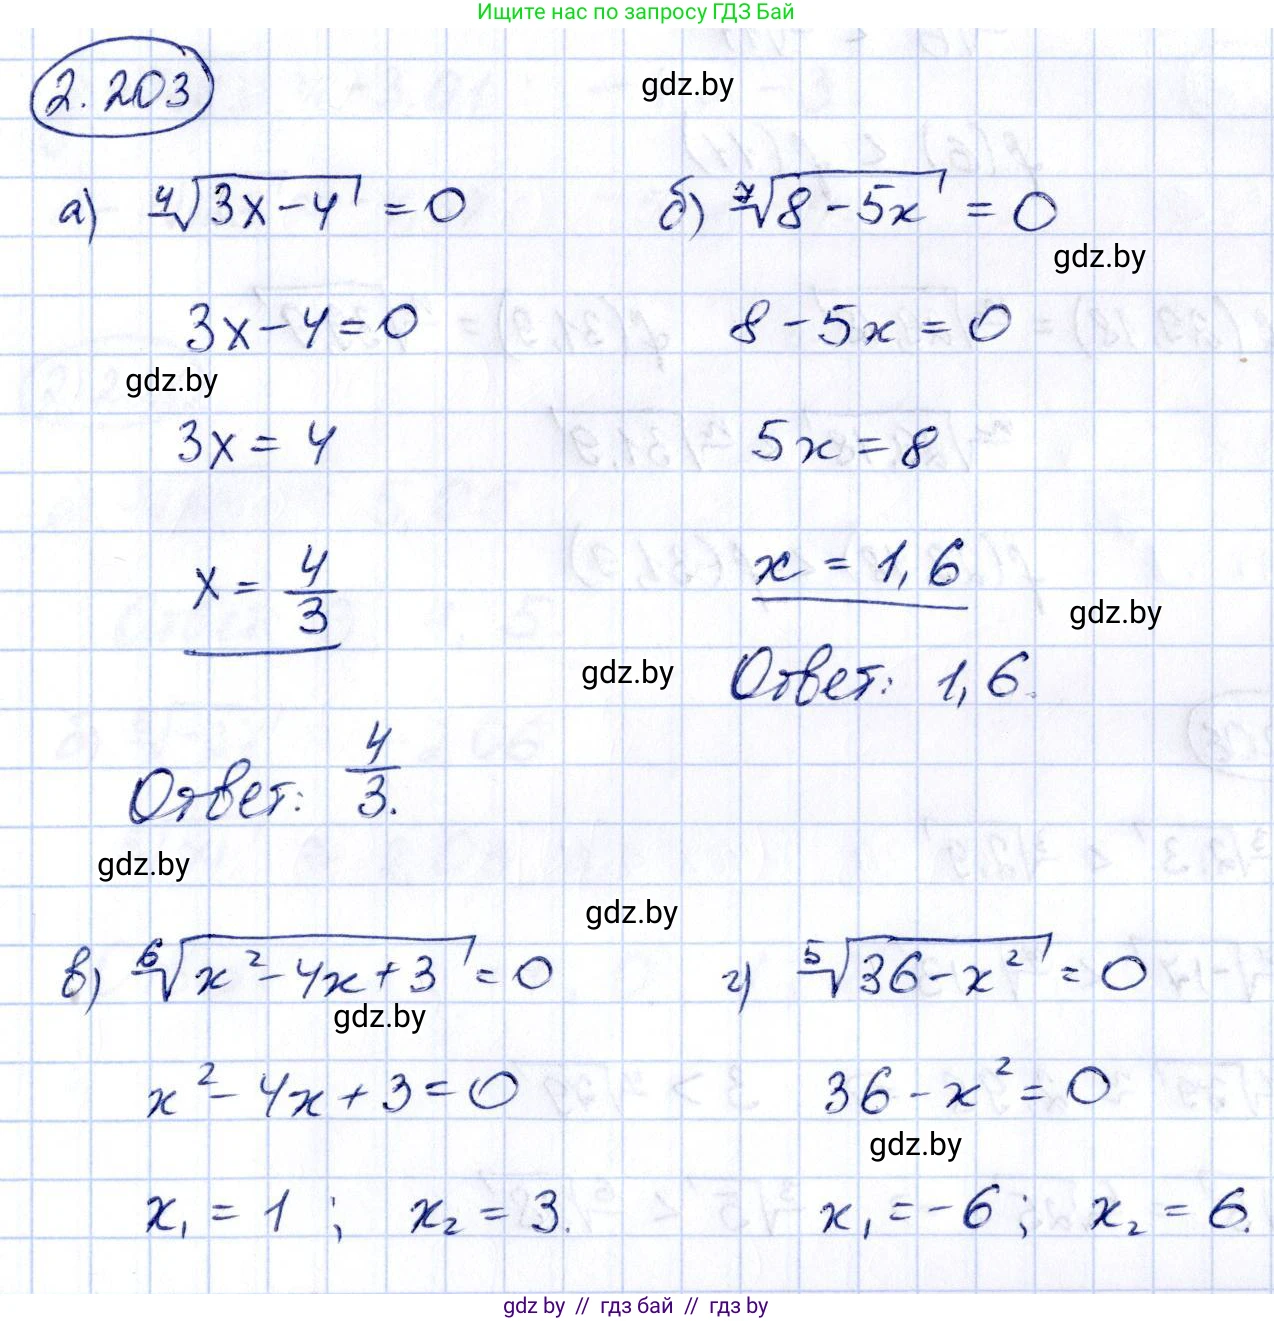 Ищите нас по запросу ГДЗ Бай
2.203
gdz.by
а) ⁴√(3x-4) = 0
б) ⁷√(8-5x) = 0
gdz.by
3x-4=0
8-5x=0
gdz.by
3x=4
5x=8
x = 4/3
x = 1,6
gdz.by
gdz.by
Ответ: 1,6.
Ответ: 4/3.
gdz.by
gdz.by
в) ⁶√(x²-4x+3) = 0
г) ⁵√(36-x²) = 0
gdz.by
x²-4x+3=0
36-x²=0
gdz.by
x₁ = 1 ; x₂ = 3.
x₁ = -6 ; x₂ = 6.
gdz by // гдз бай // гдз by